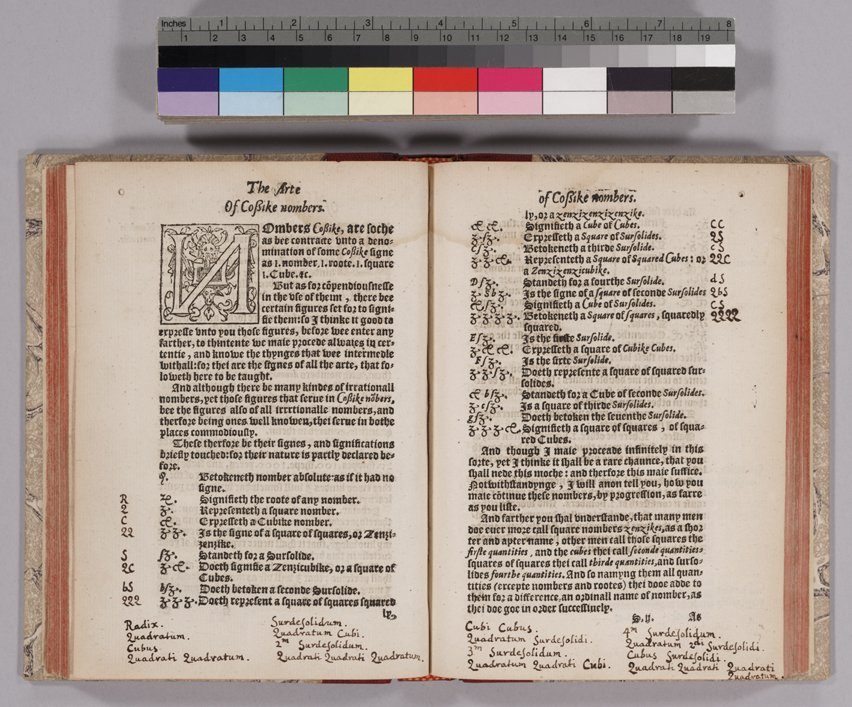 Inches 1 2 3 4 5 6 7 8
1 2 4 5 6 7 9 10 11 12 14 15 16 17 18 19
The Arte
Of Coßike nombers.
NOmbers Coßike, are soche
as bee contracte vnto a deno-
mination of some Coßike signe
as 1. nomber, 1. roote. 1. square
1. Cube. &c.
But as for cōpendiousnesse
in the vse of theim, there bee
certain figures set for to signi-
fie them: so I thinke it good to
expresse vnto you those figures, before wee enter any
farther, to thintente we maie procede alwaies in cer-
tentie, and knowe the thynges that wee intermedle
withall: for thei are the signes of all the arte, that fo-
loweth here to be taught.
And although there be many kindes of irrationall
nombers, yet those figures that serue in Coßike nōbers,
bee the figures also of all irrrtionalle nombers, and
therfore being ones well knowen, thei serue in bothe
places commodiously.
These therfore be their signes, and significations
briefly touched: for their nature is partly declared be-
fore.
Betokeneth nomber absolute: as if it had no
signe.
R Signifieth the roote of any nomber.
2 ʒ. Representeth a square nomber.
C Expresseth a Cubike nomber.
22 ʒ.ʒ. Is the signe of a square of squares, or Zenzi-
zenzike.
S ſʒ. Standeth for a Sursolide.
2C Doeth signifie a Zenzicubike, or a square of
Cubes.
bS bſʒ. Doeth betoken a seconde Sursolide.
222 ʒ.ʒ.ʒ. Doeth represent a square of squares squared
ly,
Radix. Surdesolidum.
Quadratum. Quadratum Cubi.
Cubus 2m Surdesolidum.
Quadrati Quadratum. Quadrati Quadrati Quadratum.
of Coßike nombers.
ly, or a zenzizenzizenzike.
Signifieth a Cube of Cubes. CC
ʒ.ſʒ. Expresseth a Square of Sursolides. 2S
cſʒ. Betokeneth a thirde Sursolide. cS
Representeth a Square of Squared Cubes: or 22C
a Zenzizenzicubike.
Dſʒ. Standeth for a fourthe Sursolide. dS
ʒ.bſʒ. Is the signe of a square of seconde Sursolides 2bS
Signifieth a Cube of Sursolides. CS
ʒ.ʒ.ʒ.ʒ. Betokeneth a Square of squares, squaredly 2222
squared.
Eſʒ. Is the Sursolide.
Expresseth a square of Cubike Cubes.
Fſʒ. Is the sixte Sursolide.
ʒ.ʒ.ſʒ. Doeth represente a square of squared sur-
solides.
Standeth for a Cube of seconde Sursolides.
ʒ.cſʒ. Is a square of thirde Sursolides.
Doeth betoken the seuenthe Sursolide.
Signifieth a square of squares, of squa-
red Cubes.
And though I maie proceade infinitely in this
sorte, yet I thinke it shall be a rare chaunce, that you
shall nede this moche: and therfore this maie suffice.
Notwithstandynge, I will anon tell you, how you
maie cōtinue these nombers, by progression, as farre
as you liste.
And farther you shal vnderstande, that many men
doe euer more call square nombers zenzikes, as a shor
ter and apter name, other men call those squares the
firste quantities, and the cubes thei call seconde quantities:
squares of squares thei call thirde quantities, and surso-
lides fourthe quantities. And so namyng them all quan-
tities (excepte nombers and rootes) thei dooe adde to
them for a difference, an ordinall name of nomber, as
thei doe goe in order successiuely.
S.ij. As
Cubi Cubus. 4m Surdesolidum.
Quadratum Surdesolidi. Quadratum 2di Surdesolidi.
3m Surdesolidum. Cubus Surdesolidi.
Quadratum Quadrati Cubi. Quadrati Quadrati Quadrati
Quadratum.